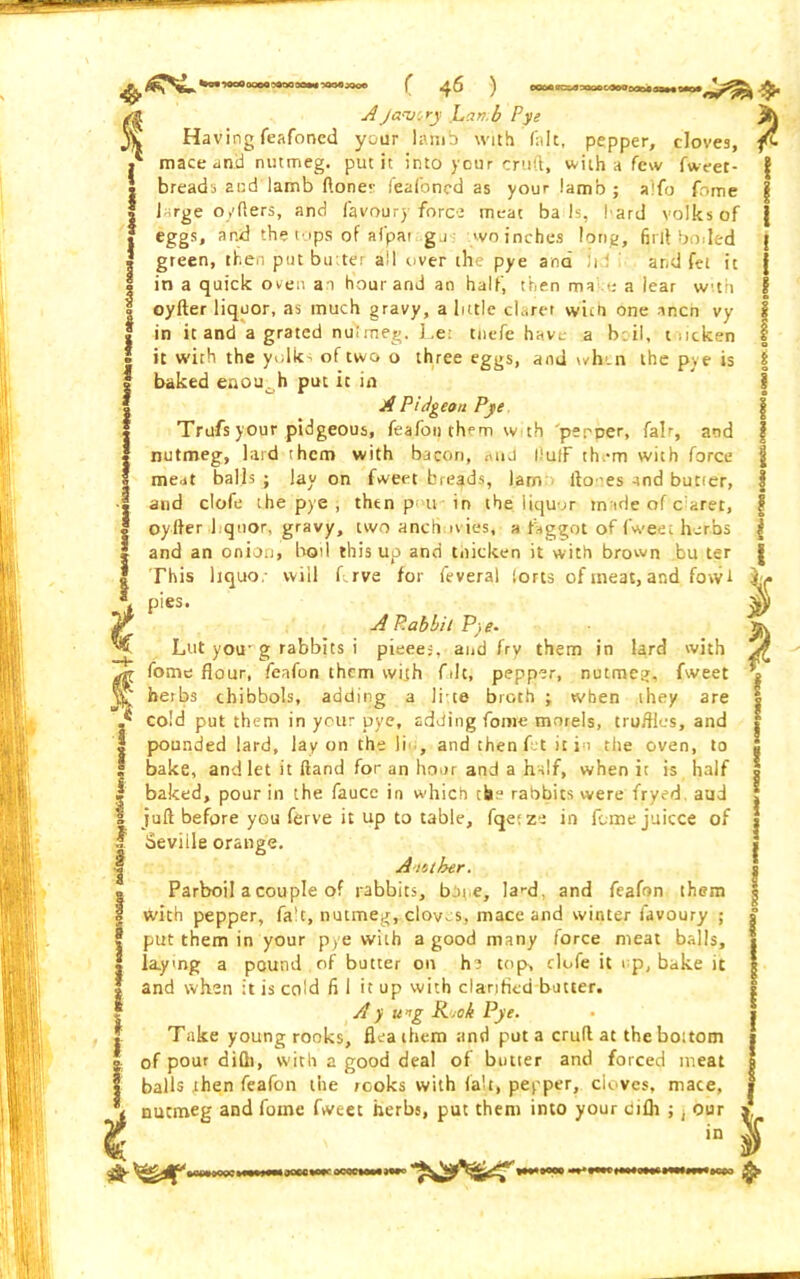 ( 46 )
A Javory Lamb Pye
Having feafoned your lamb with falt, pepper, cloves,
mace and nutmeg. put it into your cruft, with a few fweet-
breads and lamb ftones feafoned as your lamb ; alfo fome
large oyfters, and favoury force meat balls, hard yolks of
eggs, and the tops of afparagus two inches long, firft boiled
green, then put butter all over the pye and lid and fet it
in a quick oven an hour and an half, then make a lear with
oyfter liquor, as much gravy, a little claret with one anchovy
in it and a grated nutmeg. Let thefe have a boil, thicken
it with the yolks of two o three eggs, and when the pye is
baked enough put it in
A Pidgeon Pye
Trufs your pidgeous, feafon them with pepper, falt, and
nutmeg, lard them with bacon, and ftuff them with force
meat balls ; lay on fweet breads, lamb ftones and butter,
and clofe the pye , then pour in the liquor made of claret,
oyfter liquor, gravy, two anchovies, a faggot of fweet herbs
and an onion, boil this up and thicken it with brown butter
This liquor will ferve for feveral forts of meat, and fowl
pies.
A Rabbit Pye.
Cut young rabbits i pieces, and fry them in lard with
fome flour, feafon them with falt, pepper, nutmeg, fweet
herbs chibbols, adding a litte broth ; when they are
cold put them in your pye, adding fome morels, truffles, and
pounded lard, lay on the lid, and then fet it in the oven, to
bake, and let it ftand for an hour and a half, when it is half
baked, pour in the fauce in which the rabbits were fryed. aud
juft before you ferve it up to table, fqeeze in fome juicce of
Seville orange.
Another.
Parboil a couple of rabbits, bone, lard, and feafon them
with pepper, falt, nutmeg, cloves, mace and winter favoury ;
put them in your pye with a good many force meat balls,
laying a pound of butter on the top, clofe it up, bake it
and when it is cold fill it up with clarified butter.
A young Rook Pye.
Take young rooks, flea them and put a cruft at the bottom
of pour difh, with a good deal of butter and forced meat
balls then feafon the rooks with falt, pepper, cloves, mace,
nutmeg and fome fweet herbs, put them into your difh ; pour
in